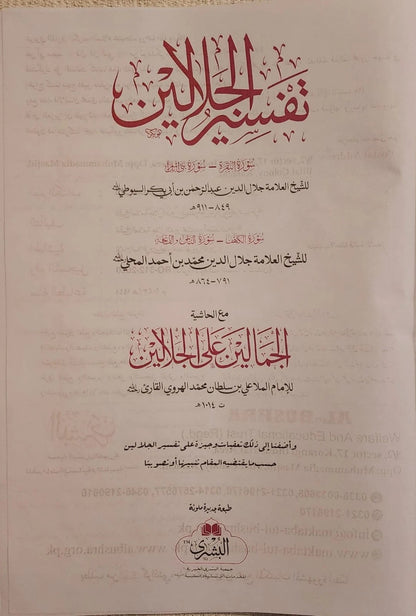 تفسير الجلالين
سُوْرَةُ البَقَرَة – سُوْرَة بَنِي إِسْرَائِيل
للشيخ العلامة جلال الدين عبدالرحمن بن أبي بكر السيوطي رحمه الله
٨٤٩ – ٩١١ هـ
سُوْرَةُ الكَهْف – سُوْرَةُ النَّاس وَالفَاتِحَة
للشيخ العلامة جلال الدين محمد بن أحمد المحلي رحمه الله
٧٩١ – ٨٦٤ هـ
مع الحاشية
الجمالين على الجلالين
للإمام الملا علي بن سلطان محمد الهروي القارئ رحمه الله
ت ١٠١٤ هـ
وأضفنا إلى ذلك تعقيبات وجيزة على تفسير الجلالين
حسب ما يقتضيه المقام تنبيهًا أو تصويبًا
طبعة جديدة ملونة
البشرى